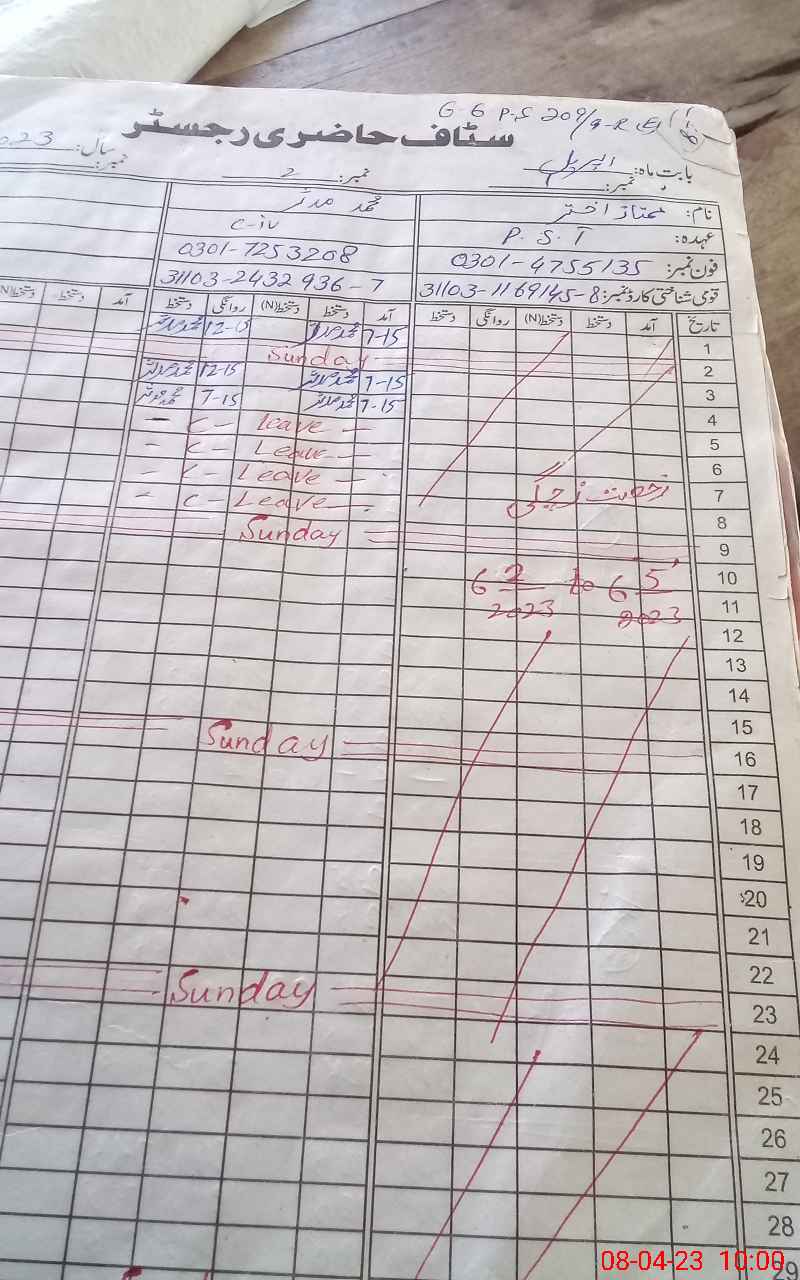 G-G P.S 209/9-R (E)
سٹاف حاضری رجسٹر
بابت ماہ: اپریل
نمبر:
نمبر: 2
سال: 2023
نمبر:
نام: ممتاز اختر
عہدہ: P.S.T
فون نمبر: 0301-4755135
قومی شناختی کارڈ نمبر: 31103-1169145-8
محمد مدثر
C-iv
0301-7253208
31103-2432936-7
تاریخ آمد دستخط دستخط(N) روانگی دستخط
آمد دستخط دستخط(N) روانگی دستخط
آمد دستخط دستخط(N)
1 7-15 محمد مدثر 12-15 محمد مدثر
2 Sunday
3 7-15 محمد مدثر 12-15 محمد مدثر
4 7-15 محمد مدثر 7-15 محمد مدثر
5 - C- Leave -
6 - C- Leave -
7 - C- Leave -
8 - C- Leave -
رخصت زچگی
9 Sunday
10
6 2/2023 to 6 5/2023
11
12
13
14
15
16 Sunday
17
18
19
20
21
22
23 Sunday
24
25
26
27
28
29
08-04-23 10:00